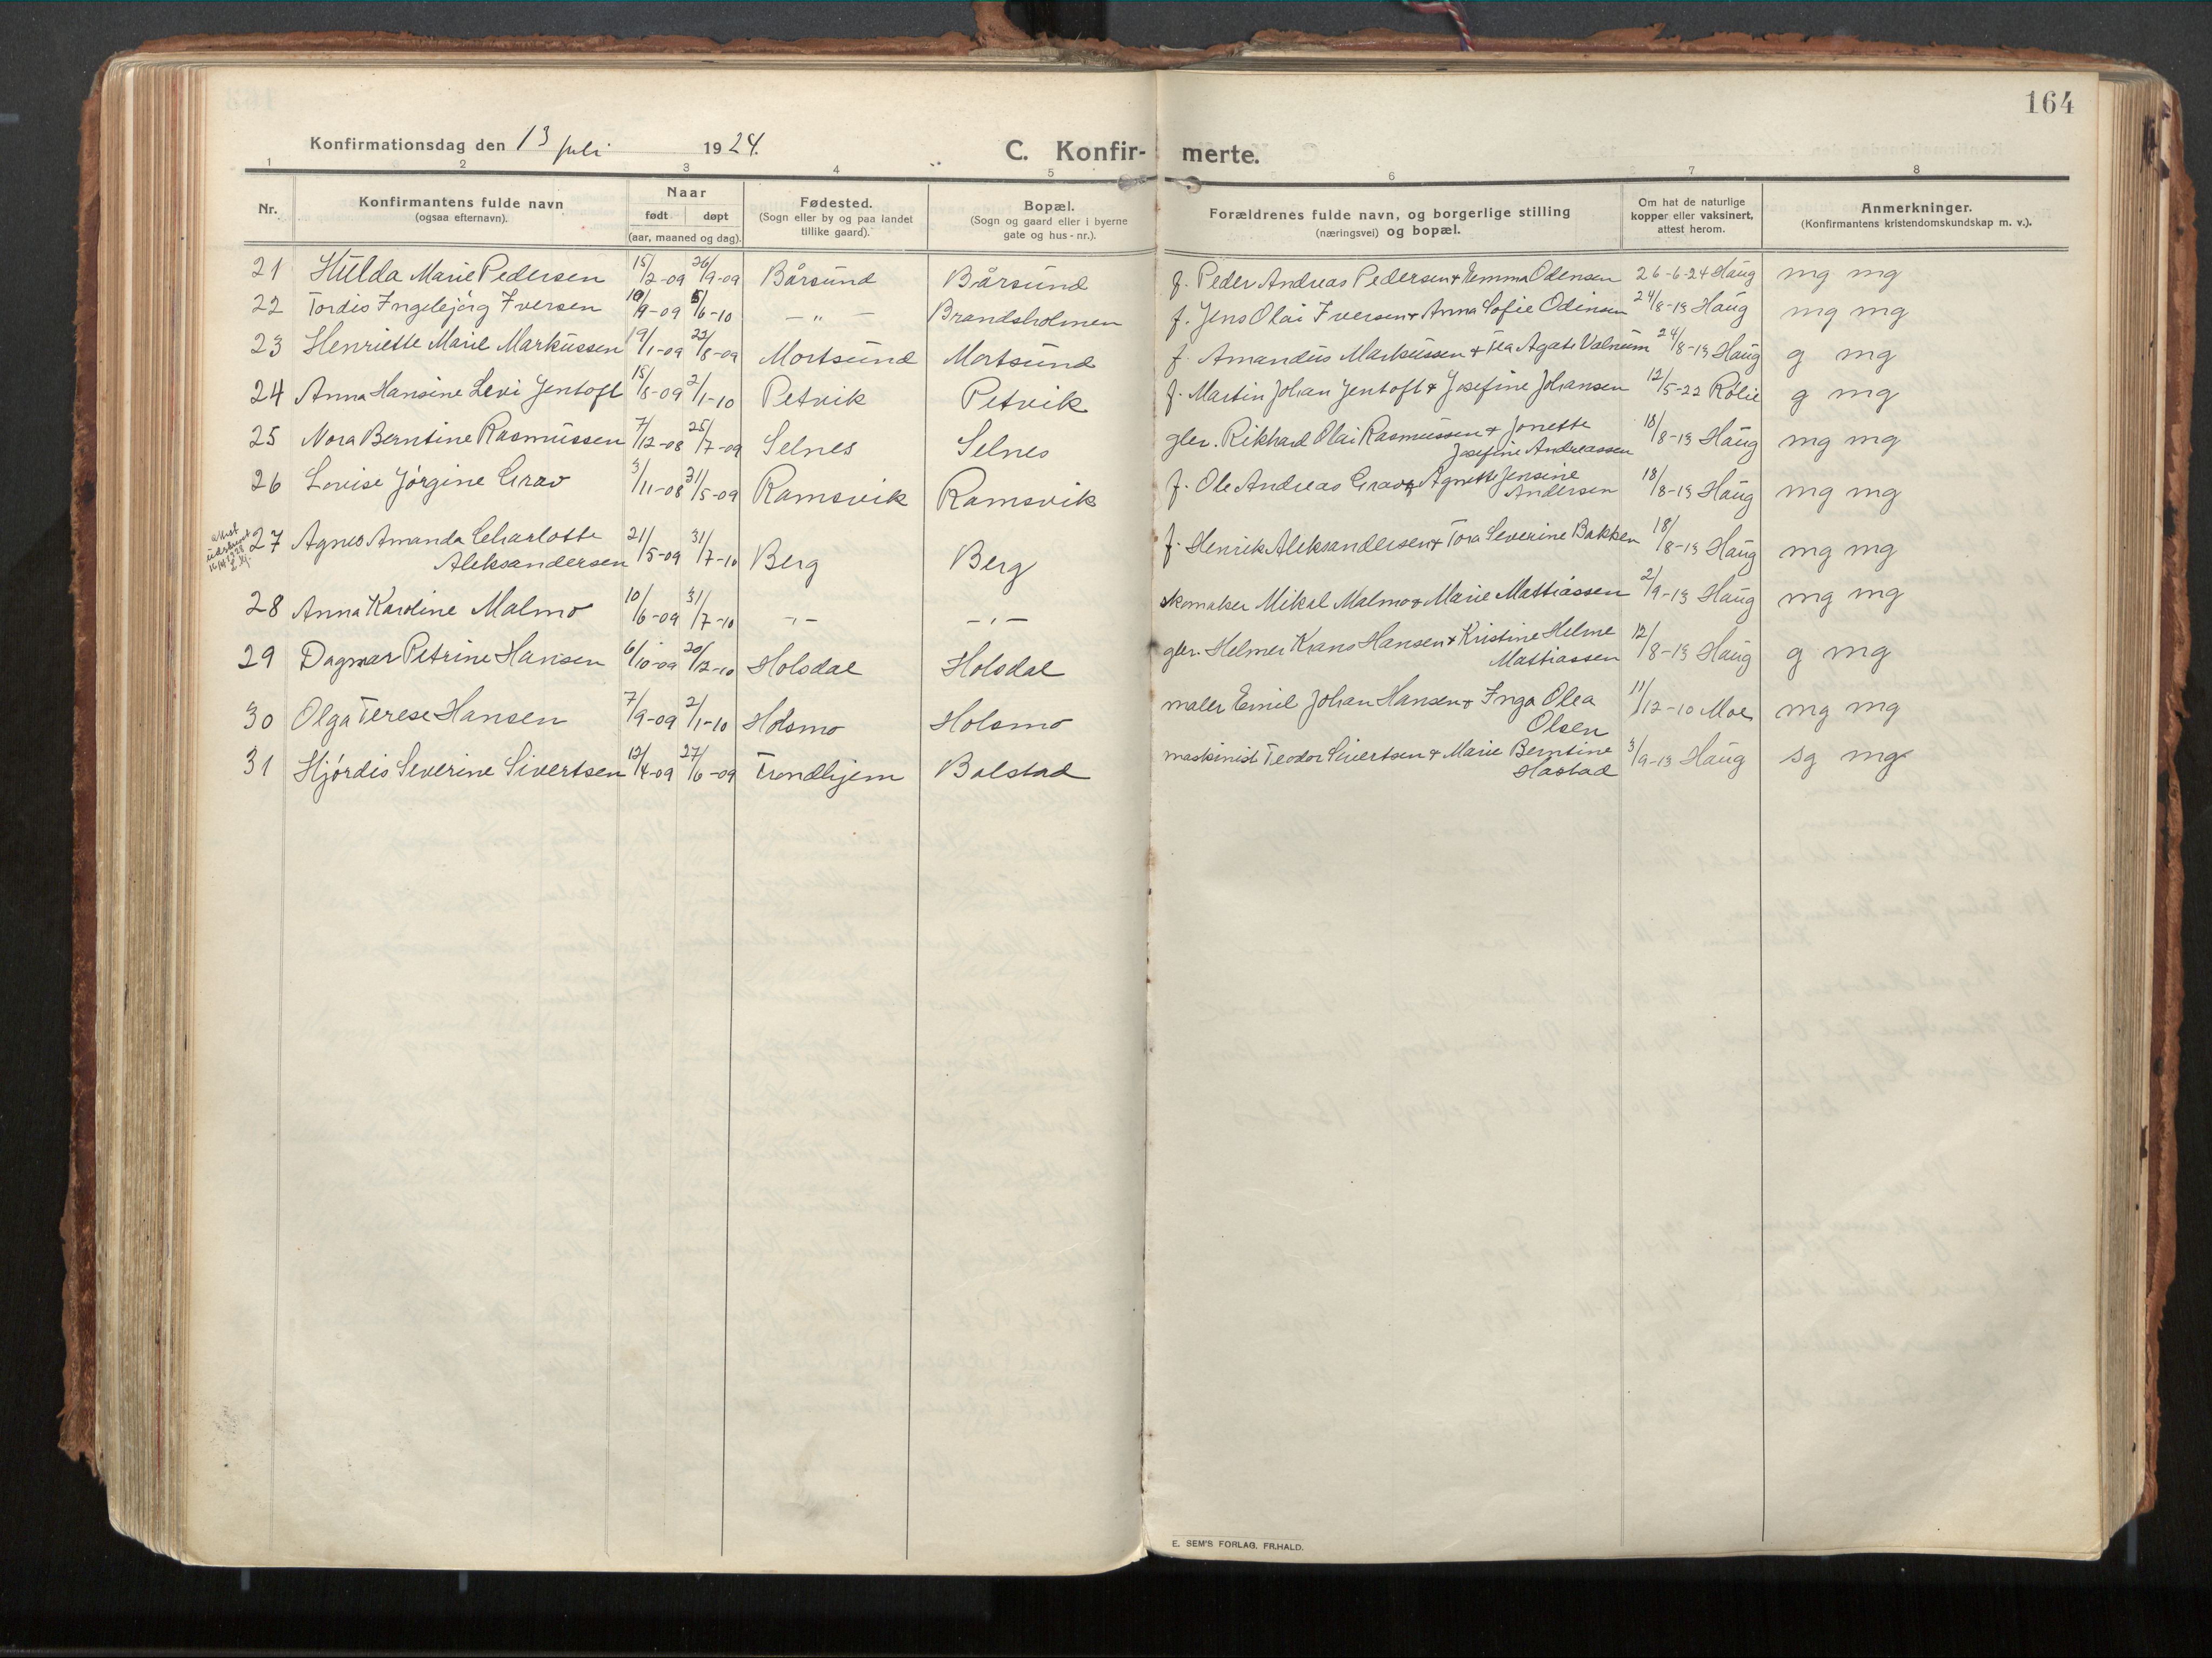 164
Konfirmationsdag den 13 juli 1924.
C. Konfir- merte.
1 2 3 4 5 6 7 8
Nr.
Konfirmantens fulde navn
(ogsaa efternavn).
Naar
født døpt
(aar, maaned og dag).
Fødested.
(Sogn eller by og paa landet
tillike gaard).
Bopæl.
(Sogn og gaard eller i byerne
gate og hus-nr.).
Forældrenes fulde navn, og borgerlige stilling
(næringsvei) og bopæl.
Om hat de naturlige
kopper eller vaksinert,
attest herom.
Anmerkninger.
(Konfirmantens kristendomskundskap m. v.).
21 Hulda Marie Pedersen 15/2-09 26/9-09 Bårsund Bårsund f. Peder Andreas Pedersen + Emma Odensen 26-6-24 Haug mg mg
22 Tordis Ingebjørg Iversen /9-09 /6-10 – " – Brandsholmen f. Jens Olai Iversen + Anna Sofie Odinsen 24/8-13 Haug mg mg
23 Henriette Marie Markussen 19/1-09 22/8-09 Mortsund Mortsund f. Amandus Markussen + Tea Agate Valnum 24/8-13 Haug g mg
24 Anna Hansine Levi Jentoft 15/8-09 2/1-10 Petvik Petvik f. Martin Johan Jentoft + Josefine Johansen 12/5-22 Rølie g mg
25 Nora Berntine Rasmussen 7/12-08 25/7-09 Selnes Selnes gbr. Rikhard Olai Rasmussen + Jonette
Josefine Andreassen 18/8-13 Haug mg mg
26 Lovise Jørgine Grav 3/11-08 31/5-09 Ramsvik Ramsvik f. Ole Andreas Grav + Agnette Jensine
Andersen 18/8-13 Haug mg mg
27 Agnes Amanda Charlotte
Aleksandersen 21/5-09 31/7-10 Berg Berg f. Henrik Aleksandersen + Tora Severine Bakken 18/8-13 Haug mg mg
28 Anna Karoline Malmo 10/6-09 31/7-10 – " – – " – skomaker Mikal Malmo + Marie Mattiassen 2/9-13 Haug mg mg
29 Dagmar Petrine Hansen 6/10-09 20/12-10 Holsdal Holsdal gbr. Helmer Krans Hansen + Kristine Helme
Mattiassen 12/8-13 Haug g mg
30 Olga Terese Hansen 7/9-09 2/1-10 Holsmo Holsmo maler Emil Johan Hansen + Inga Olea
Olsen 11/12-10 Moe mg mg
31 Hjørdis Severine Sivertsen 12/4-09 27/6-09 Trondhjem Balstad maskinist Teodor Sivertsen + Marie Berntine
Hastad 3/9-13 Haug sg mg
E. SEM'S FORLAG. FR.HALD.